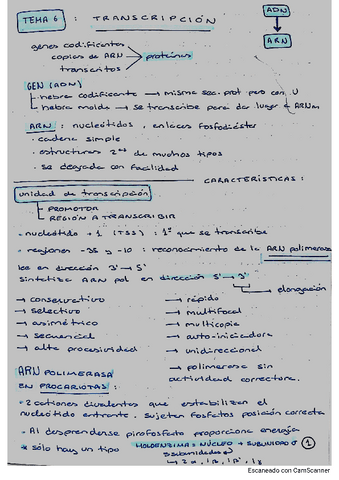 TEMA 6 : TRANSCRIPCIÓN
ADN
ARN
genes codificantes
copias de ARN → proteínas
transcritos
GEN (ADN)
hebra codificante → misma sec. prot pero con U
hebra molde → se transcribe para dar lugar a ARNm
ARN : nucleótidos, enlaces fosfodiéster
• cadena simple
• estructuras 2ªs de muchos tipos
• se degrada con facilidad
CARACTERÍSTICAS :
unidad de transcripción
PROMOTOR
REGIÓN A TRANSCRIBIR
• nucleótido +1 (TSS) : 1º que se transcribe
• regiones -35 y -10 : reconocimiento de la ARN polimerasa
lee en dirección 3' → 5'
sintetiza ARN pol en dirección 5' → 3'
elongación
→ conservativo
→ rápido
→ selectivo
→ multifocal
→ asimétrico
→ multicopia
→ secuencial
→ auto-iniciadora
→ alta procesividad
→ unidireccional
→ polimerasa sin
actividad correctora.
ARN POLIMERASA
EN PROCARIOTAS :
• 2 cationes divalentes que estabilizan el
nucleótido entrante. Sujetan fosfatos posición correcta
• Al desprenderse pirofosfato proporciona energía
* sólo hay un tipo HOLOENZIMA = NÚCLEO + SUBUNIDAD σ 1
5 subunidades
Escaneado con CamScanner